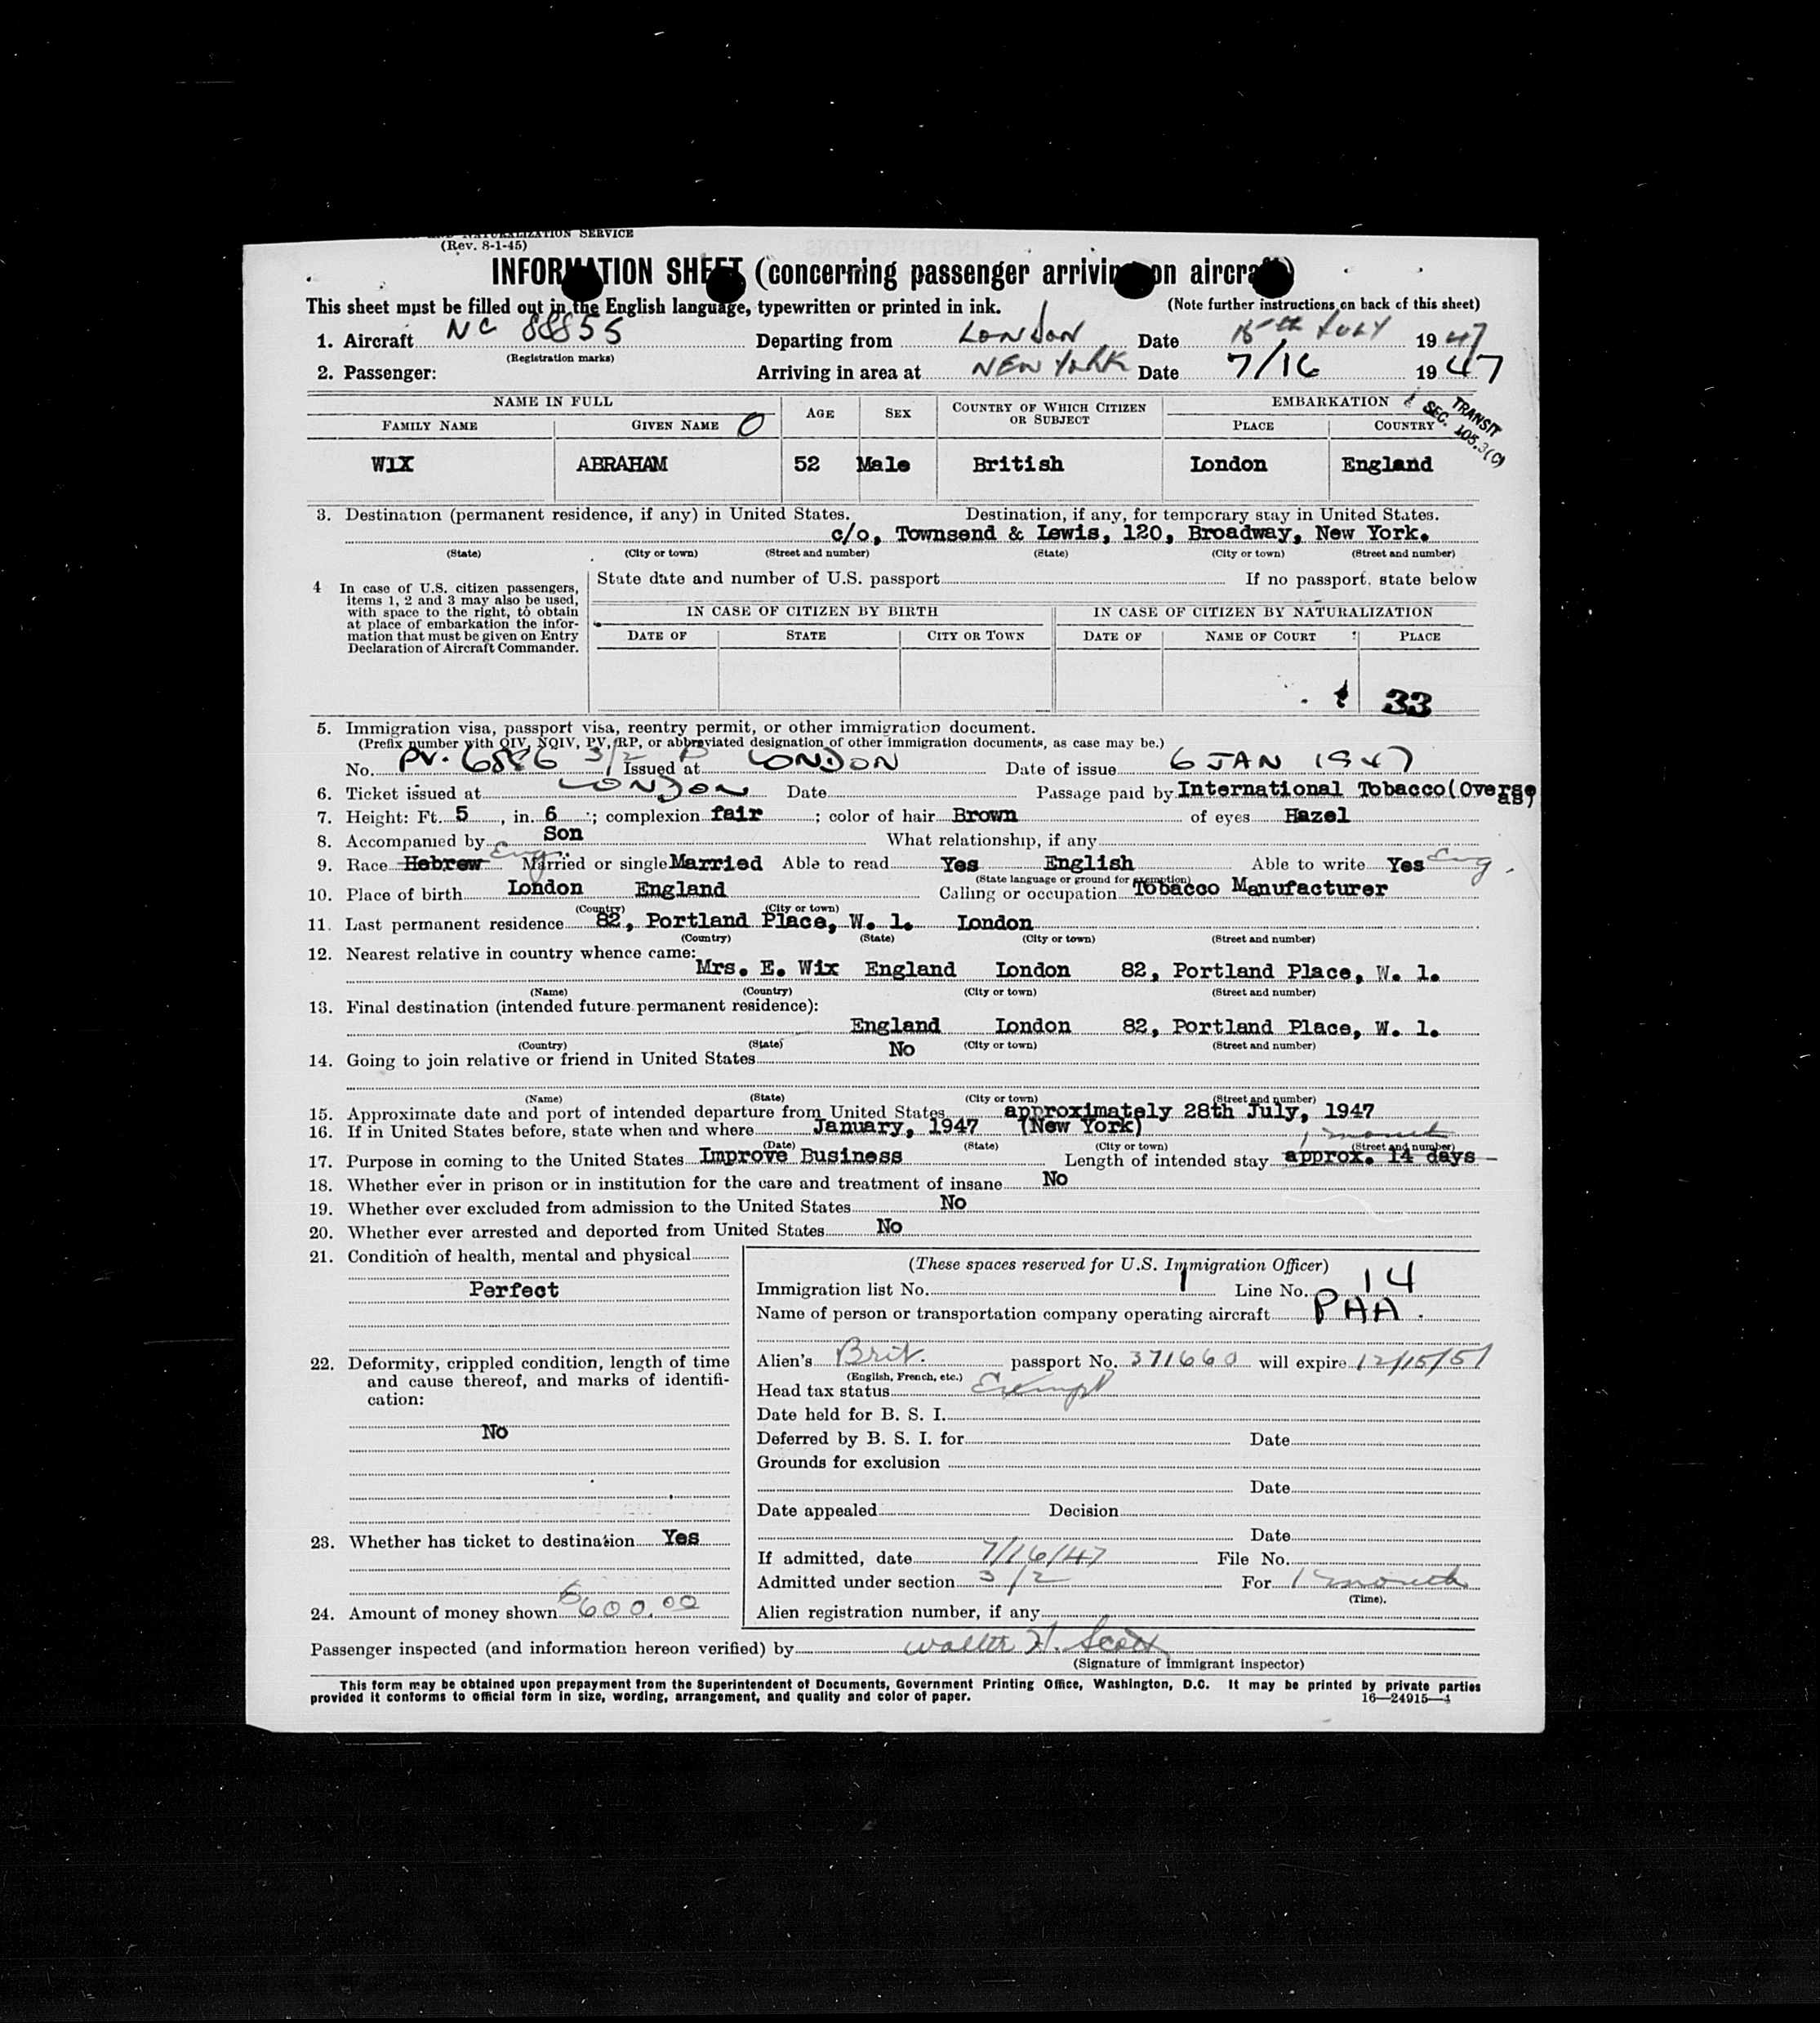 NATURALIZATION SERVICE
(Rev. 8-1-45)
INFORMATION SHEET (concerning passenger arriving on aircraft)
This sheet must be filled out in the English language, typewritten or printed in ink. (Note further instructions on back of this sheet)
1. Aircraft NC 88855 Departing from LONDON Date 15th JULY 1947
(Registration marks)
2. Passenger: Arriving in area at NEW YORK Date 7/16 1947
NAME IN FULL AGE SEX COUNTRY OF WHICH CITIZEN OR SUBJECT EMBARKATION
FAMILY NAME GIVEN NAME O PLACE COUNTRY
TRANSIT
SEC. 105.3(C)
WIX ABRAHAM 52 Male British London England
3. Destination (permanent residence, if any) in United States. Destination, if any, for temporary stay in United States.
c/o, Townsend & Lewis, 120, Broadway, New York.
(State) (City or town) (Street and number) (State) (City or town) (Street and number)
4 In case of U.S. citizen passengers, items 1, 2 and 3 may also be used, with space to the right, to obtain at place of embarkation the information that must be given on Entry Declaration of Aircraft Commander.
State date and number of U.S. passport If no passport, state below
IN CASE OF CITIZEN BY BIRTH IN CASE OF CITIZEN BY NATURALIZATION
DATE OF STATE CITY OR TOWN DATE OF NAME OF COURT PLACE
33
5. Immigration visa, passport visa, reentry permit, or other immigration document.
(Prefix number with QIV, NQIV, PV, RP, or abbreviated designation of other immigration documents, as case may be.)
No. PV. 6886 3/2 B Issued at LONDON Date of issue 6 JAN 1947
6. Ticket issued at LONDON Date Passage paid by International Tobacco(Overseas)
7. Height: Ft. 5, in. 6; complexion fair; color of hair Brown of eyes Hazel
8. Accompanied by Son What relationship, if any
9. Race Hebrew Eng. Married or single Married Able to read Yes English Able to write Yes Eng
(State language or ground for exemption)
10. Place of birth London England Calling or occupation Tobacco Manufacturer
(Country) (City or town)
11. Last permanent residence 82, Portland Place, W. 1. London
(Country) (State) (City or town) (Street and number)
12. Nearest relative in country whence came:
Mrs. E. Wix England London 82, Portland Place, W. 1.
(Name) (Country) (City or town) (Street and number)
13. Final destination (intended future permanent residence):
England London 82, Portland Place, W. 1.
(Country) (State) (City or town) (Street and number)
14. Going to join relative or friend in United States No
(Name) (State) (City or town) (Street and number)
15. Approximate date and port of intended departure from United States approximately 28th July, 1947
16. If in United States before, state when and where January, 1947 (New York)
(Date) (State) (City or town) (Street and number)
1 month
17. Purpose in coming to the United States Improve Business Length of intended stay approx. 14 days
18. Whether ever in prison or in institution for the care and treatment of insane No
19. Whether ever excluded from admission to the United States No
20. Whether ever arrested and deported from United States No
21. Condition of health, mental and physical
Perfect
22. Deformity, crippled condition, length of time and cause thereof, and marks of identification:
No
23. Whether has ticket to destination Yes
24. Amount of money shown $600.00
(These spaces reserved for U.S. Immigration Officer)
Immigration list No. 1 Line No. 14
Name of person or transportation company operating aircraft PAA.
Alien's Brit. passport No. 371660 will expire 12/15/51
(English, French, etc.)
Head tax status Exempt
Date held for B. S. I.
Deferred by B. S. I. for Date
Grounds for exclusion
Date
Date appealed Decision
Date
If admitted, date 7/16/47 File No.
Admitted under section 3/2 For 1 month
(Time).
Alien registration number, if any
Passenger inspected (and information hereon verified) by Walter H. Scott
(Signature of immigrant inspector)
This form may be obtained upon prepayment from the Superintendent of Documents, Government Printing Office, Washington, D.C. It may be printed by private parties
provided it conforms to official form in size, wording, arrangement, and quality and color of paper. 16—24915—4